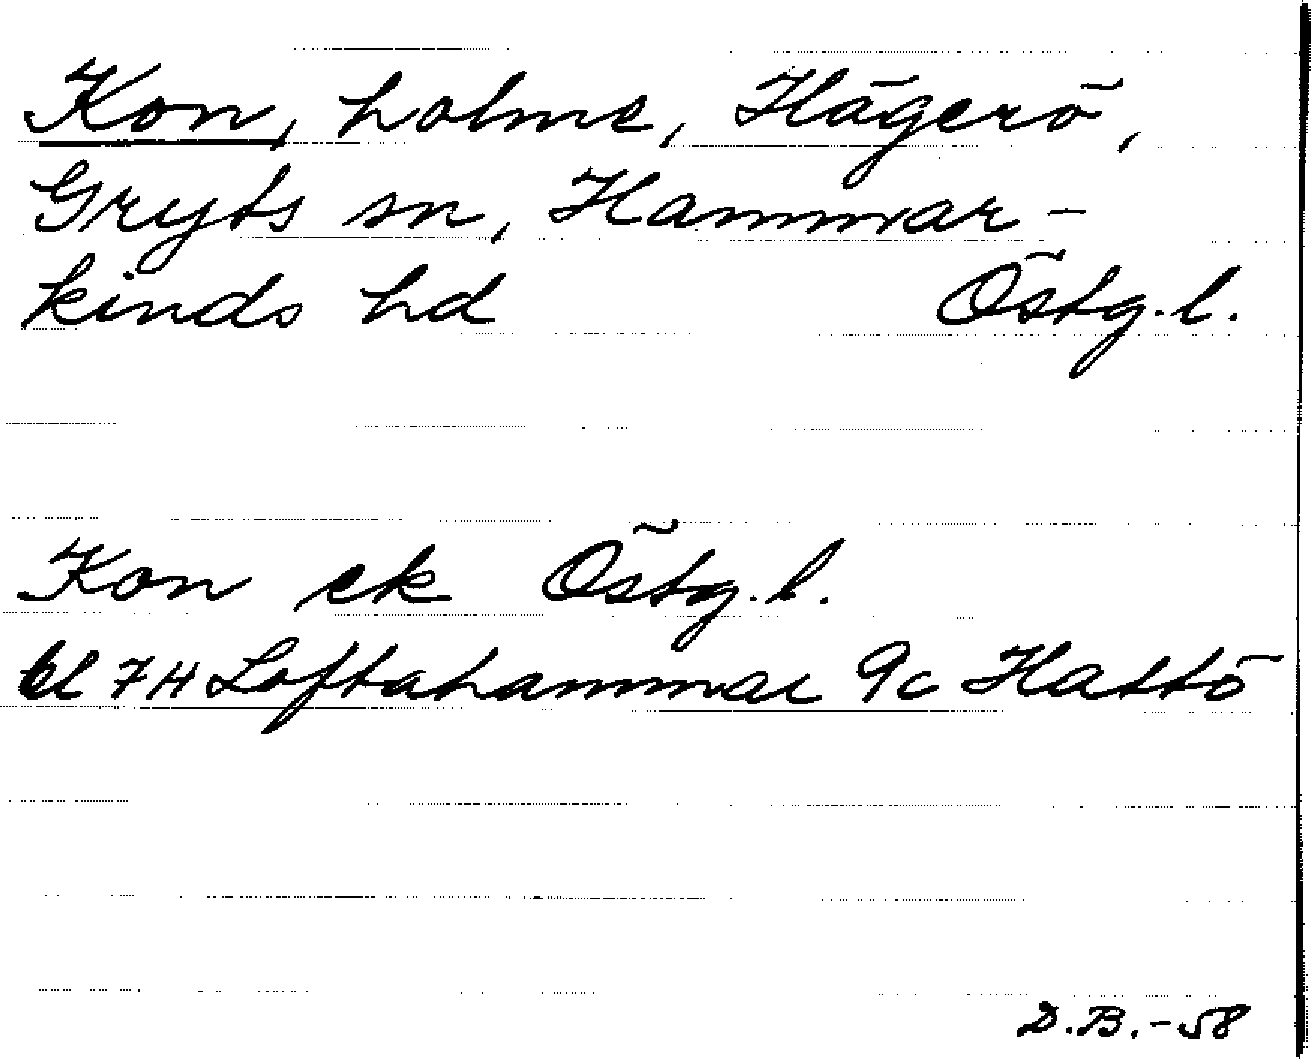 Kon, holme, Hägerö,
Gryts sn, Hammar-
kinds hd Östg.l.
Kon ek Östg.l.
bl 7H Loftahammar 9c Hattö
D.B.-58